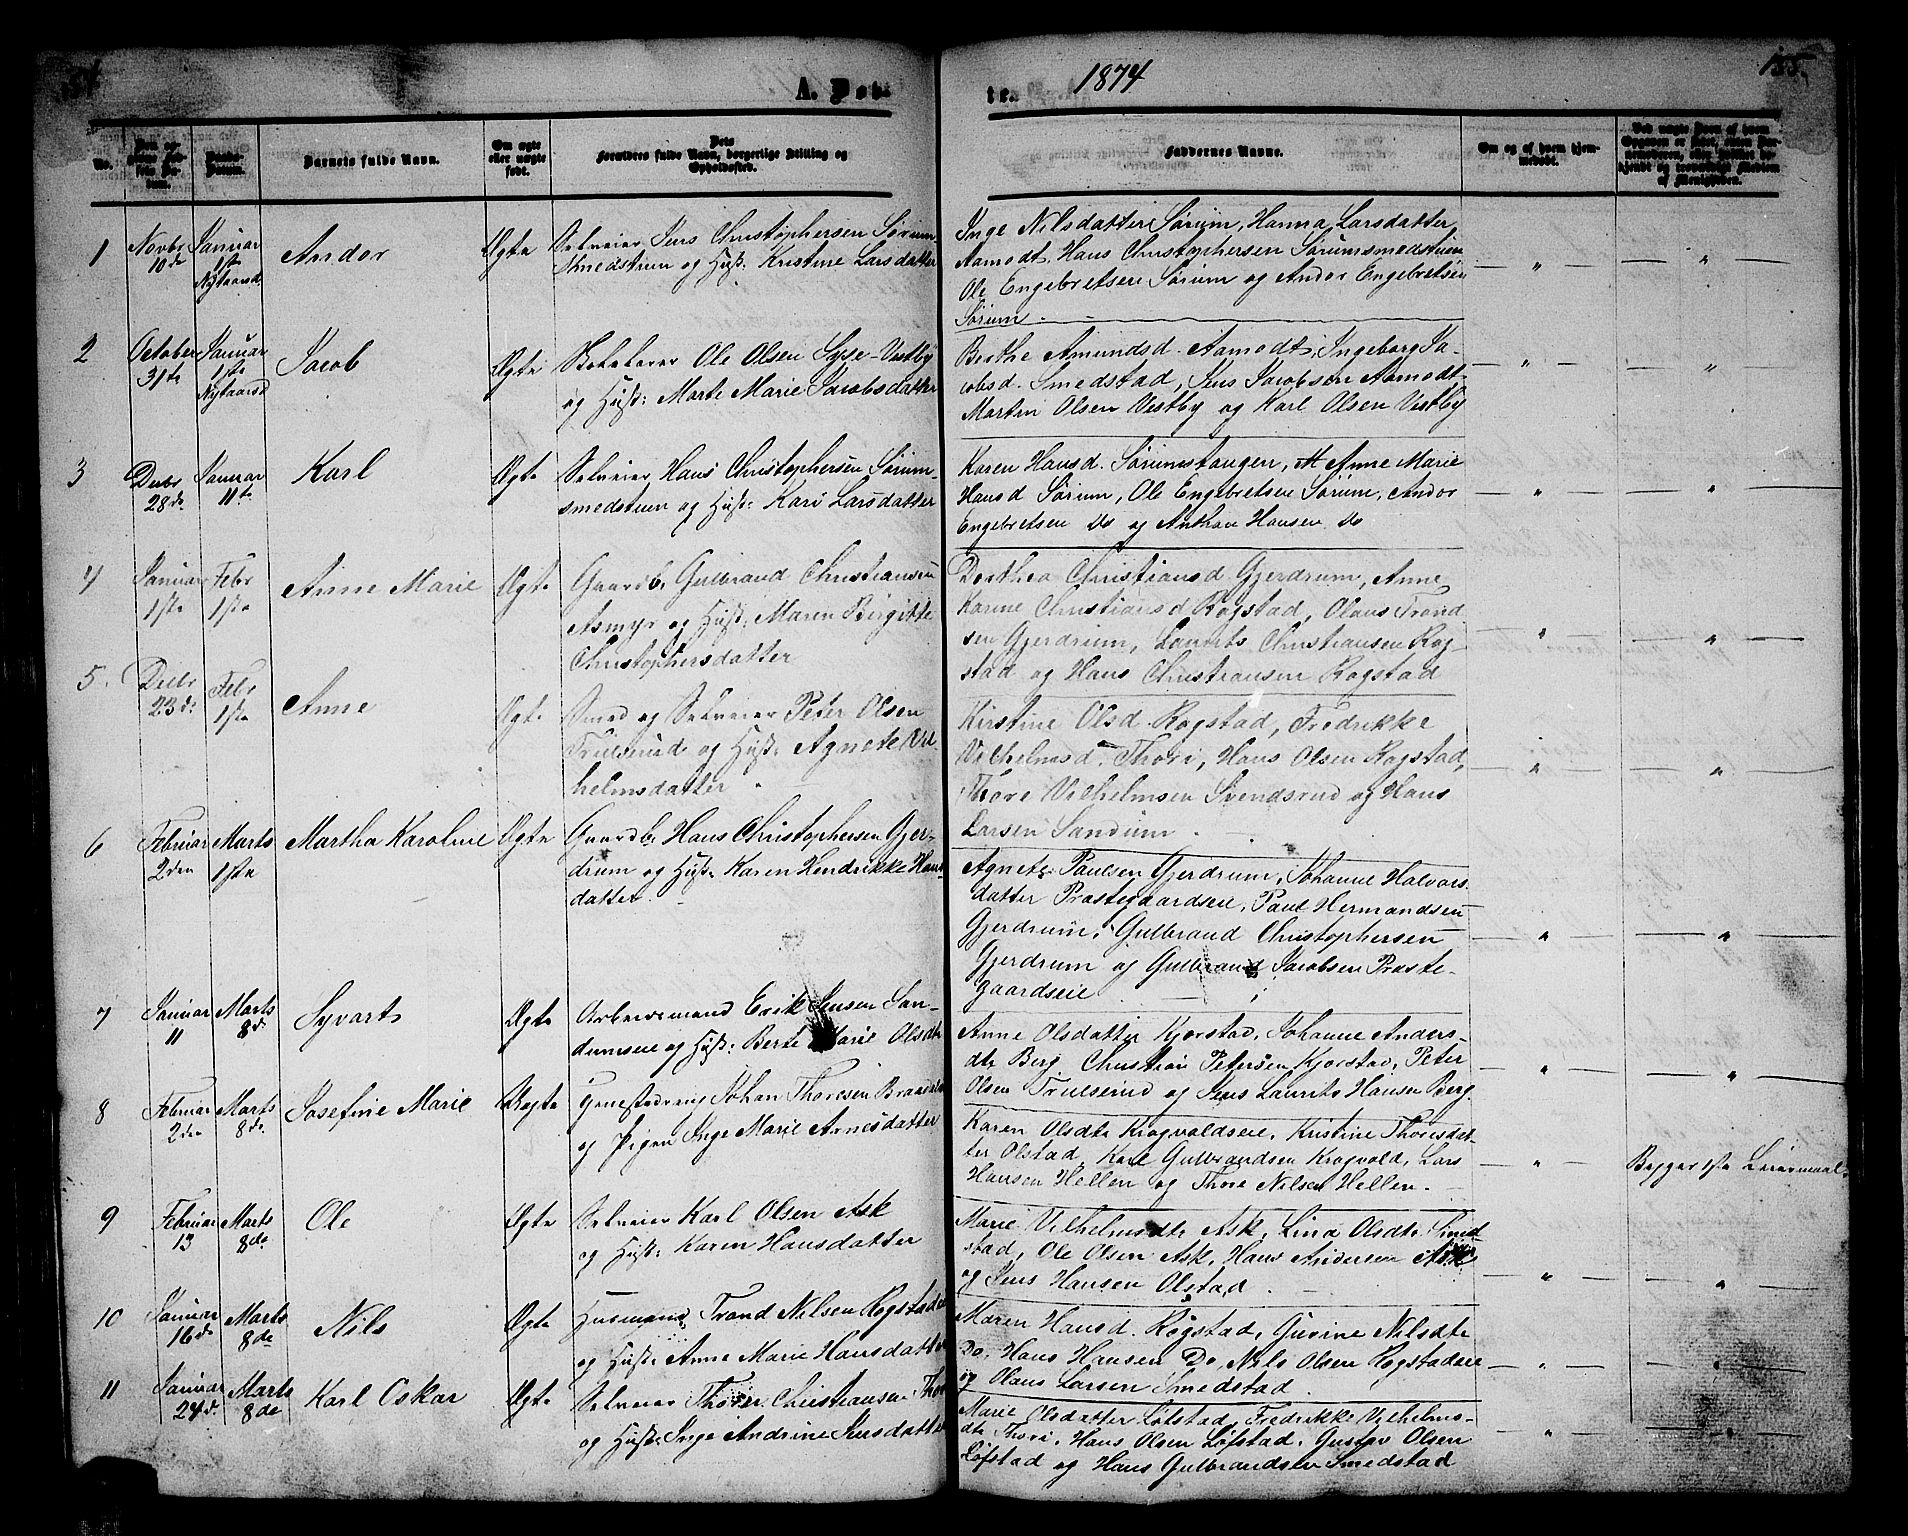 1874
155.
A. Døbte
No.
Barnets fulde Navn.
Om ægte eller uægte født.
Dets Forældres fulde Navn, borgerlige Stilling og Opholdssted.
Faddernes Navne.
Om og af hvem hjemmedøbt.
1
Novbr 10de
Januar 1ste Nytaarsd
Andor
Ægte
Selveier Jens Christophersen Sørum-
smedstuen og Hust: Kristine Larsdatter
Inge Nilsdatter Sørum, Hanna Larsdatter
Aamodt, Hans Christophersen Sørumsmedstuen
Ole Engebretsen Sørum og Andor Engebretsen
Sørum.
2
October 31te
Januar 1ste Nytaarsd
Jacob
Ægte
Ole Olsen Vestby
og Hust: Marte Marie Jacobsdatter
Berthe Amundsd. Aamodt, Ingeborg Ja-
cobsd. Smedstad, Jens Jacobsen Aamodt
Martin Olsen Vestby og Karl Olsen Vestby
3
Decbr 28de
Januar 11te
Karl
Ægte
Selveier Hans Christophersen Sørum-
smedstuen og Hust: Kari Larsdatter
Karen Hansd. Sørumstangen, Anne Marie
Hansd Sørum, Ole Engebretsen Sørum, Andor
Engebretsen Do og Anthon Hansen Do
4
Januar 1ste
Febr 1ste
Anne Marie
Ægte
Gaardb. Gulbrand Christiansen
Asmyr og Hust: Maren Birgitte
Christophersdatter
Dorthea Christiansd Gjerdrum, Anne
Karine Christiansd Rogstad, Olaus Trond
sen Gjerdrum, Laurits Christiansen Rog-
stad og Hans Christiansen Rogstad
5.
Decbr 23de
Febr 1ste
Anne
Ægte
Smed og Selveier Peter Olsen
Trulserud og Hust: Agnete Vil-
helmsdatter
Kirstine Olsd. Rogstad, Fredrikke
Vilhelmsd. Thori, Hans Olsen Rogstad,
Thore Vilhelmsen Svendsrud og Hans
Larsen Sandum.
6
Februar 2den
Marts 1ste
Martha Karoline
Ægte
Gaardb. Hans Christophersen Gjer-
drum og Hust: Karen Hendrikke Hans-
datter.
Agnete Paulsen Gjerdrum, Johanne Halvors-
datter Præstegaardseie, Paul Hermandsen
Gjerdrum, Gulbrand Christophersen
Gjerdrum og Gulbrand Jacobsen Præste-
gaardseie
7
Januar 11
Marts 8de
Syvart
Ægte
Arbeidsmand Erik Jensen San-
dumseie og Hust: Berte Marie Olsdtr
Anne Olsdatter Kjorstad, Johanne Anders-
dtr Berg, Christian Petersen Kjorstad, Peter
Olsen Trulserud og Jens Laurits Hansen Berg.
8
Februar 2den
Marts 8de
Josefine Marie
Uægte
Tjenestedreng Johan Thoresen
og Pigen Inge Marie Arnesdatter
Karen Olsdtr Krogvoldseie, Kristine Thoresdat-
ter Olstad, Karl Gulbrandsen Krogvold, Lars
Hansen Hellen og Thore Nilsen Hellen.
Begges 1ste Leiermaal
9
Februar 13
Marts 8de
Ole
Ægte
Selveier Karl Olsen Ask
og Hust: Karen Hansdatter
Marie Vilhelmsdtr Ask, Lina Olsdtr Smed-
stad, Ole Olsen Ask, Hans Andersen Ask
og Jens Hansen Olstad.
10
Januar 16de
Marts 8de
Nils
Ægte
Husmand Trond Nilsen Rogstadeie
og Hust: Anne Marie Hansdatter
Maren Hansd. Rogstad, Gurine Nilsdtr
Do, Hans Hansen Do, Nils Olsen Rogstadeie
og Olaus Larsen Smedstad.
11
Januar 24de
Marts 8de
Karl Oskar
Ægte
Selveier Thorer Christiansen Thori
og Hust: Inge Andrine Jensdatter
Marie Olsdatter Løfstad, Fredrikke Vilhelms-
dtr Thori, Hans Olsen Løfstad, Gustav Olsen
Løfstad og Hans Gulbrandsen Smedstad